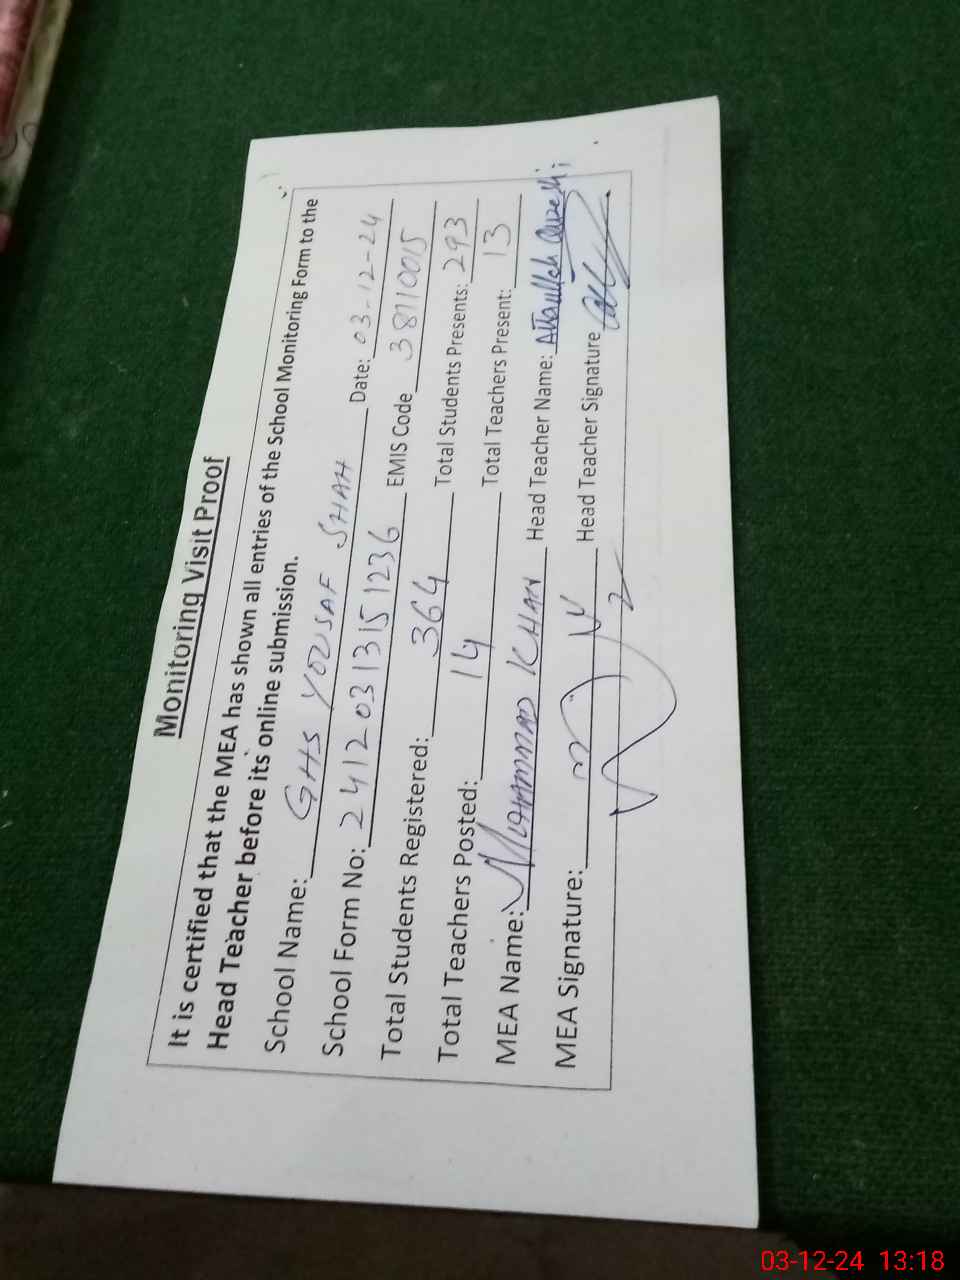 Monitoring Visit Proof
It is certified that the MEA has shown all entries of the School Monitoring Form to the
Head Teacher before its online submission.
School Name: GHS YOUSAF SHAH Date: 03-12-24
School Form No: 2412031315 1236 EMIS Code 38110015
Total Students Registered: 364 Total Students Presents: 293
Total Teachers Posted: 14 Total Teachers Present: 13
MEA Name: MUHAMMAD KHAN Head Teacher Name: Attaullah
MEA Signature: Head Teacher Signature
03-12-24 13:18